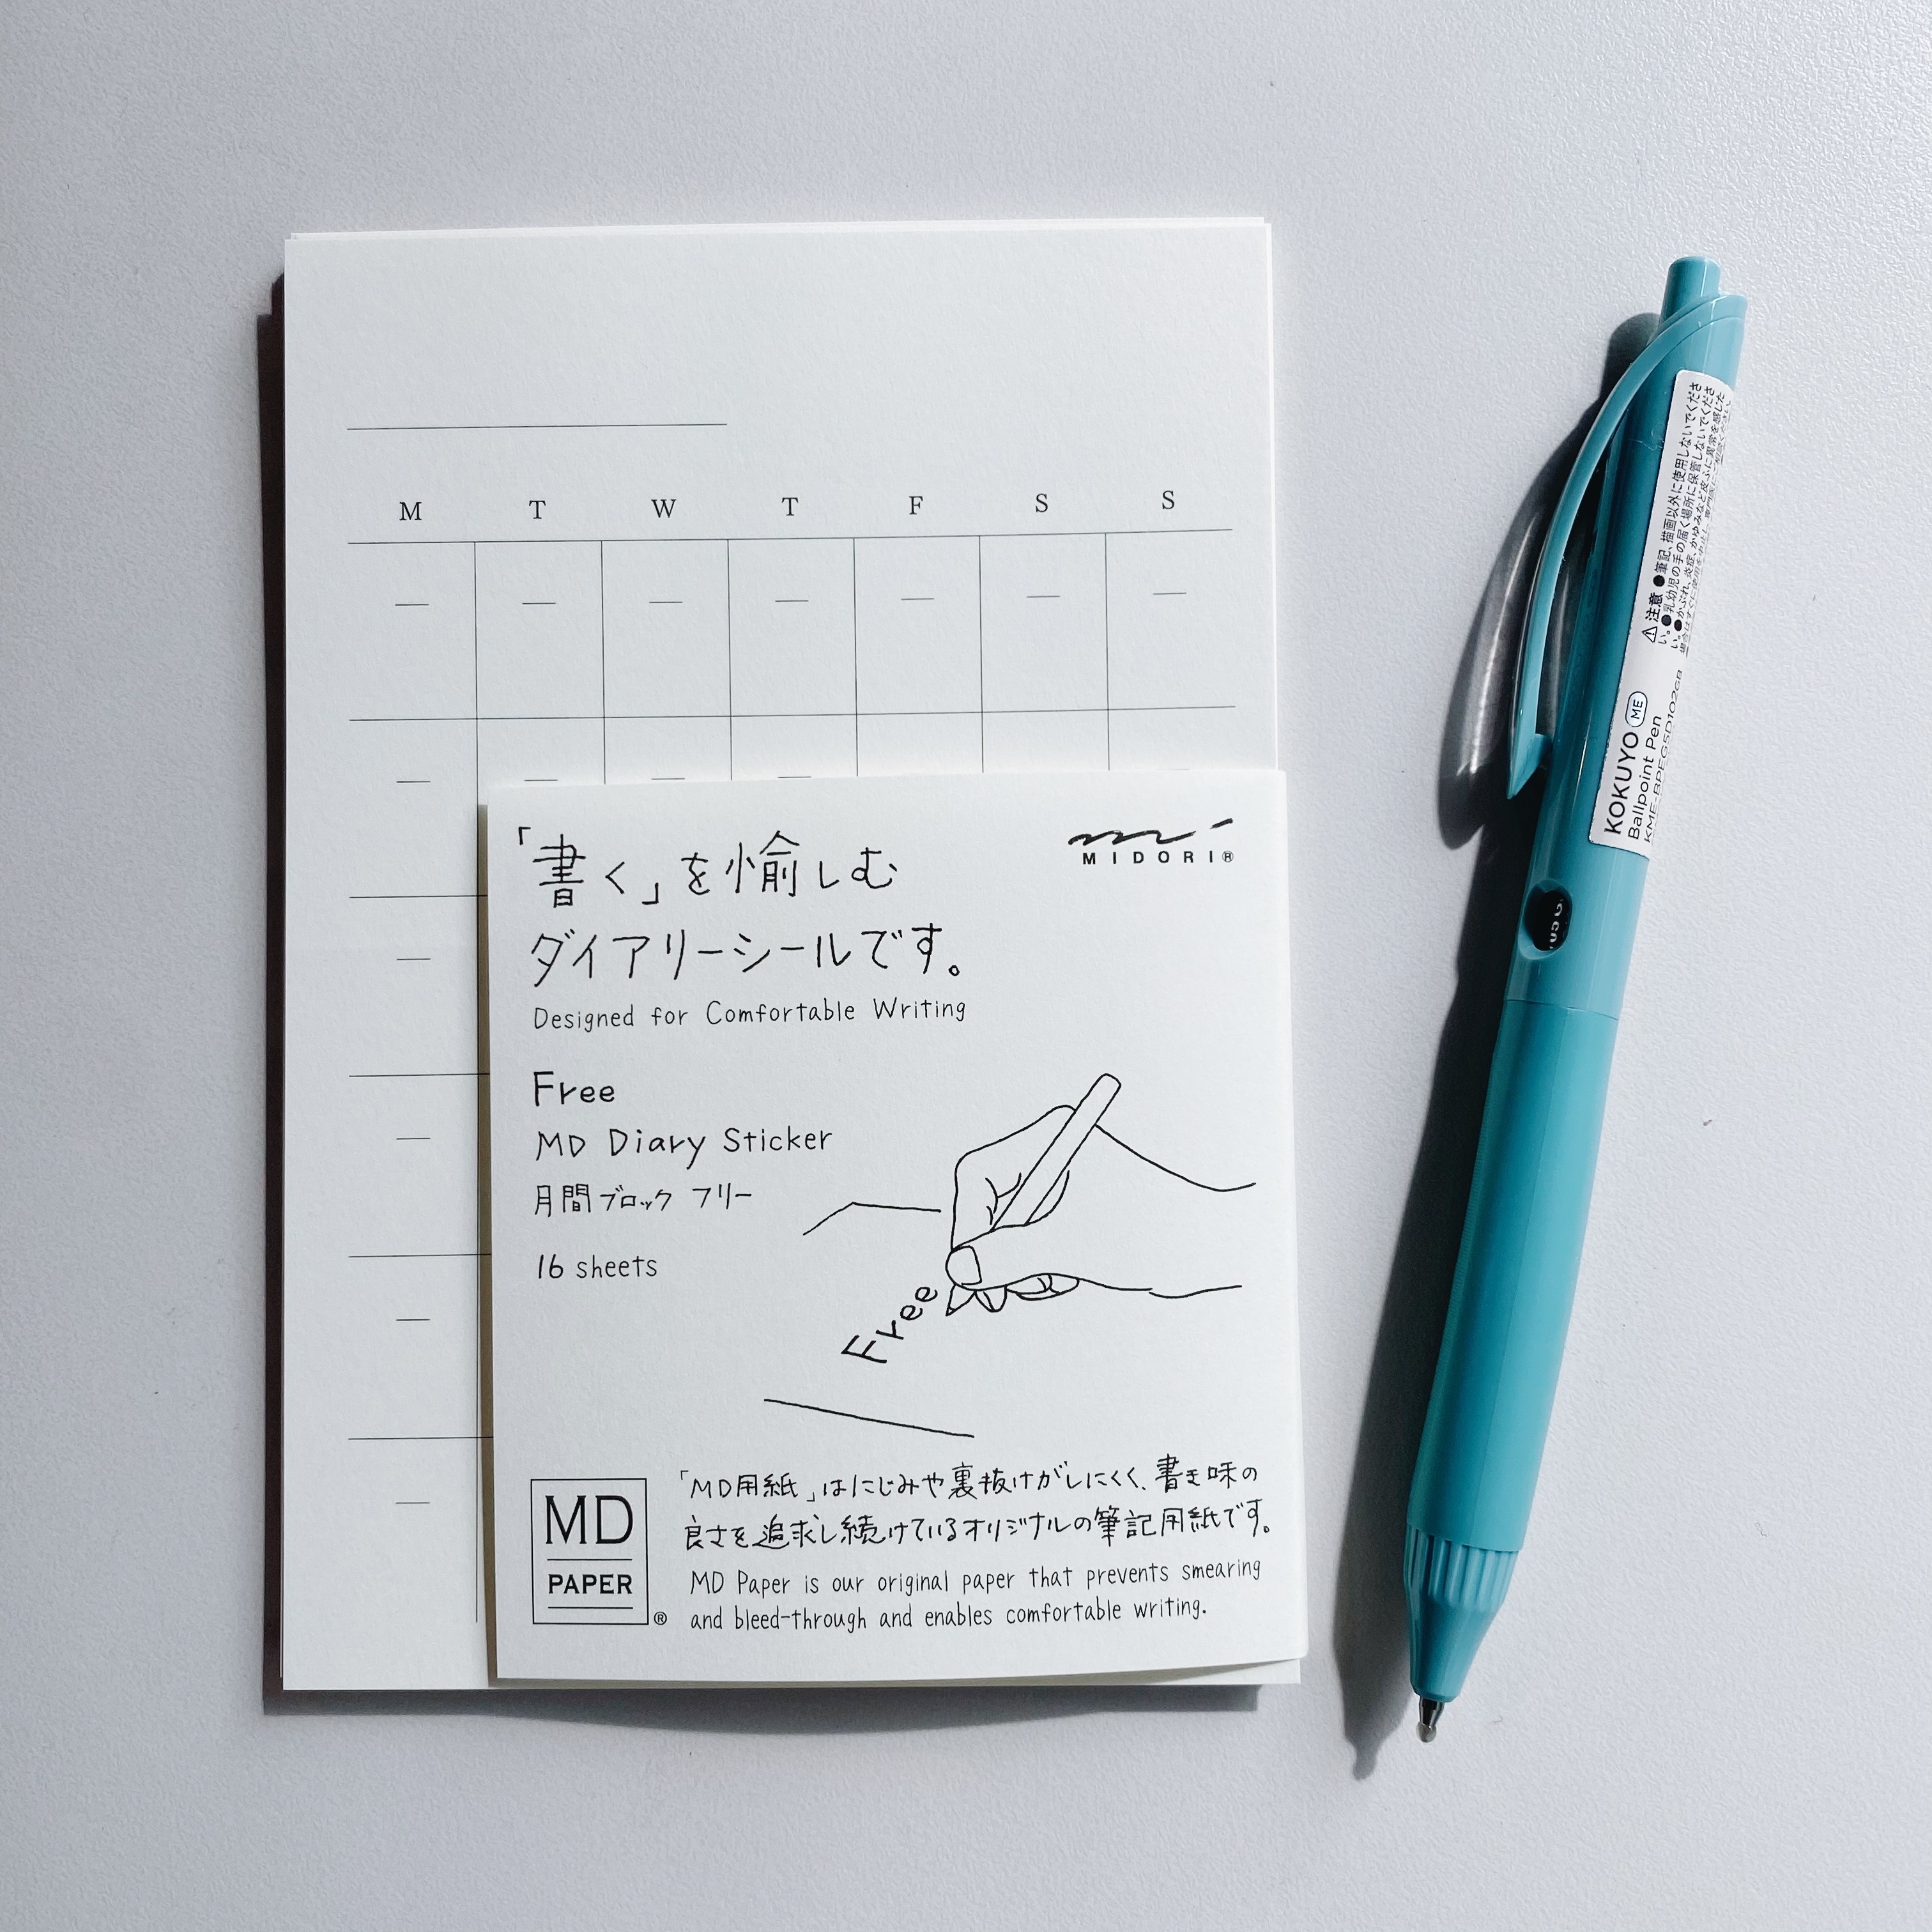 M T W T F S S
「書く」を愉しむ
MIDORI®
ダイアリーシールです。
Designed for Comfortable Writing
Free
MD Diary Sticker
月間ブロック フリー
16 sheets
Free
MD
PAPER
®
「MD用紙」はにじみや裏抜けがしにくく、書き味の
良さを追求し続けているオリジナルの筆記用紙です。
MD Paper is our original paper that prevents smearing
and bleed-through and enables comfortable writing.
⚠注意 ●筆記、描画以外に使用しないでくださ
い。●乳幼児の手の届く場所に保管しないでくださ
い。●かぶれ、炎症、かゆみなど皮ふに異常を感じた
KOKUYO ME
Ballpoint Pen
KME-BPEG5D102GB